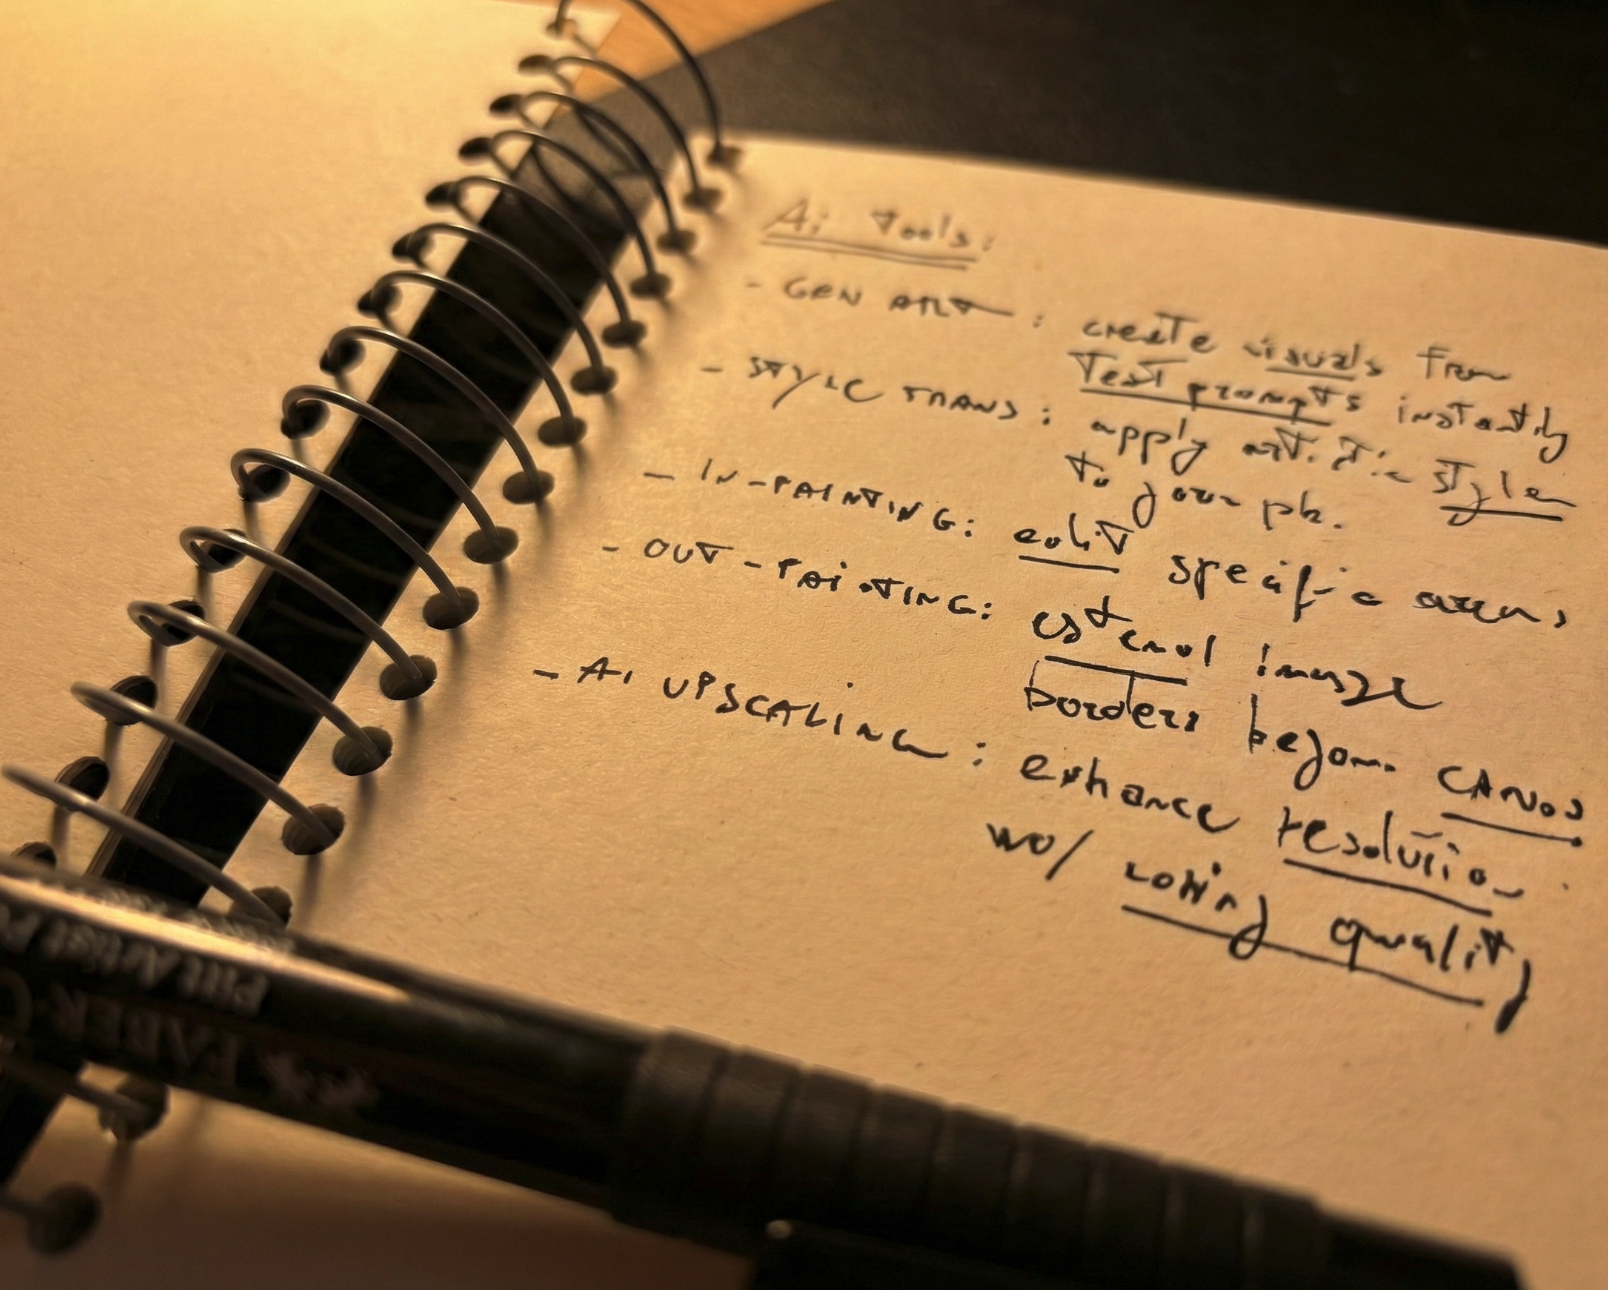 Ai Tools:
- GEN ART: create visuals from
text prompts instantly
- STYLE TRANS: apply artistic styles
to your ph.
- IN-PAINTING: edit specific areas
- OUT-PAINTING: extend image
borders beyond CANVAS
- AI UPSCALING: enhance resolution
wo/ losing quality
Pitt Artist Pen
FABER-C